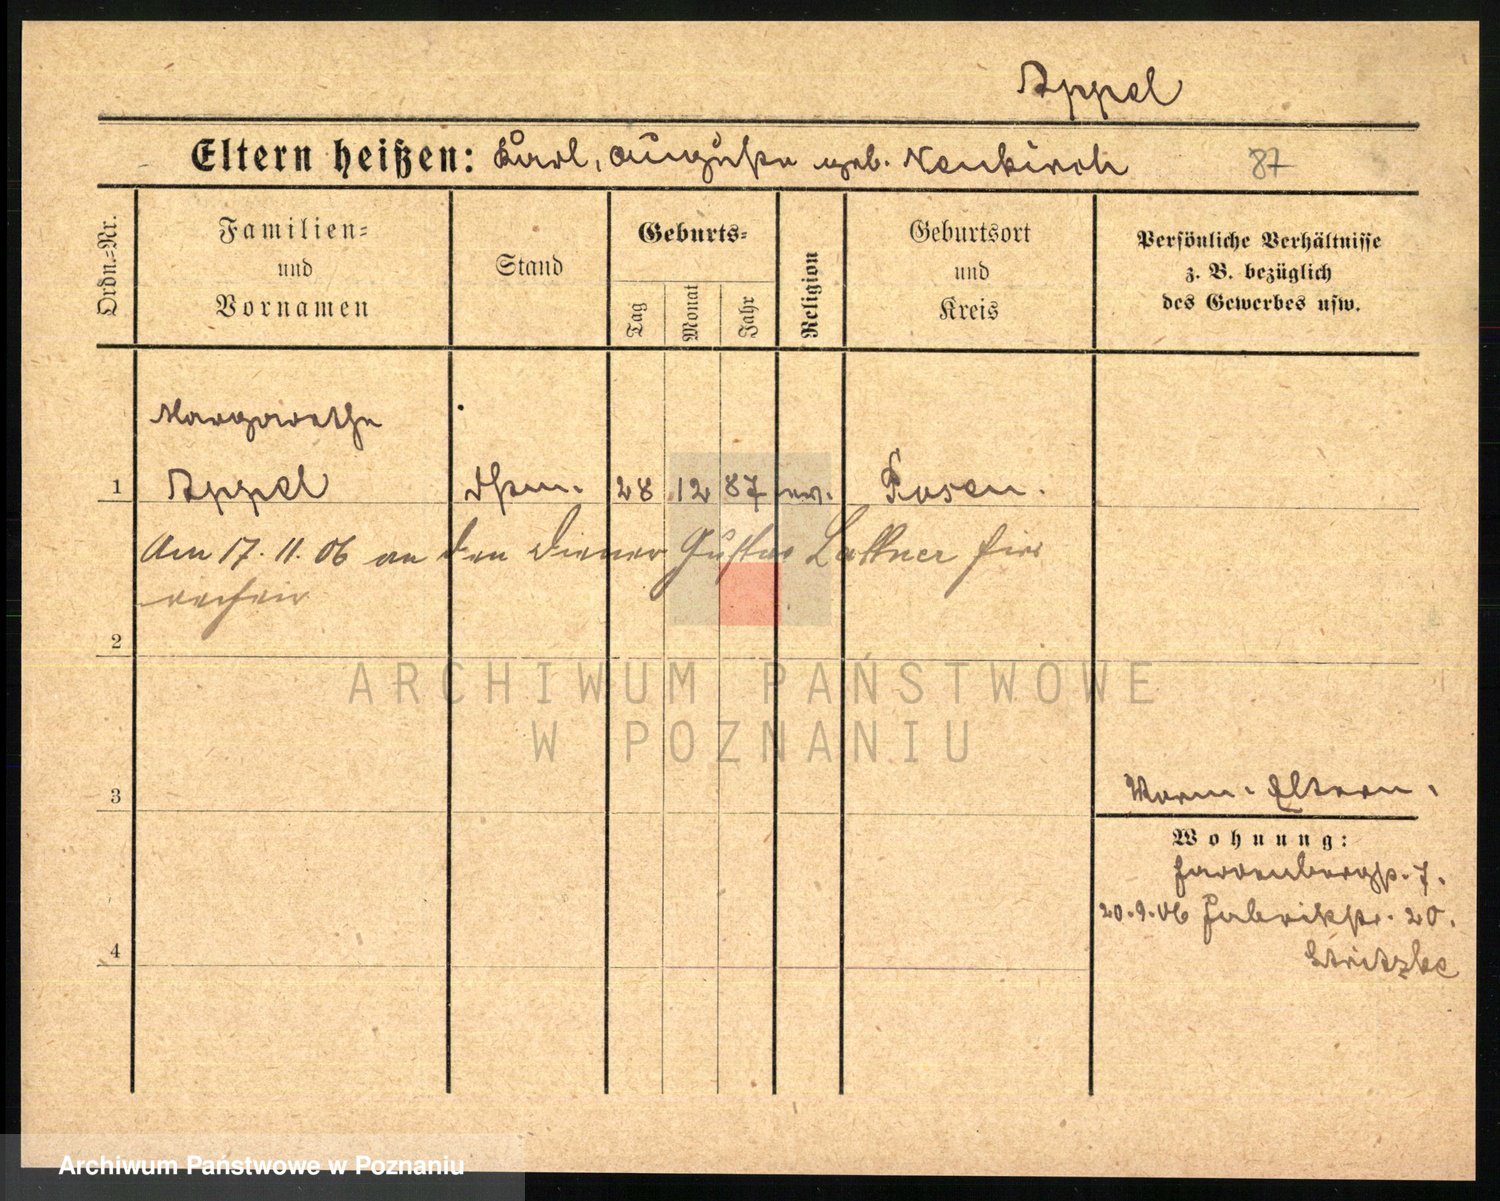 Appel
Eltern heißen: Karl, Auguste geb. Neukirch 87
Ordn.-Nr.
Familien-
und
Vornamen
Stand
Geburts-
Tag
Monat
Jahr
Religion
Geburtsort
und
Kreis
Persönliche Verhältnisse
z. B. bezüglich
des Gewerbes usw.
Margarethe
1 Appel 28 12 87 ev. Posen.
Am 17. 11. 06 an den Diener Gustav Lattner hier
2
3
Eltern.
Wohnung:
7.
20.9.06 Fabrikstr. 20.
4
ARCHIWUM PAŃSTWOWE
W POZNANIU
Archiwum Państwowe w Poznaniu